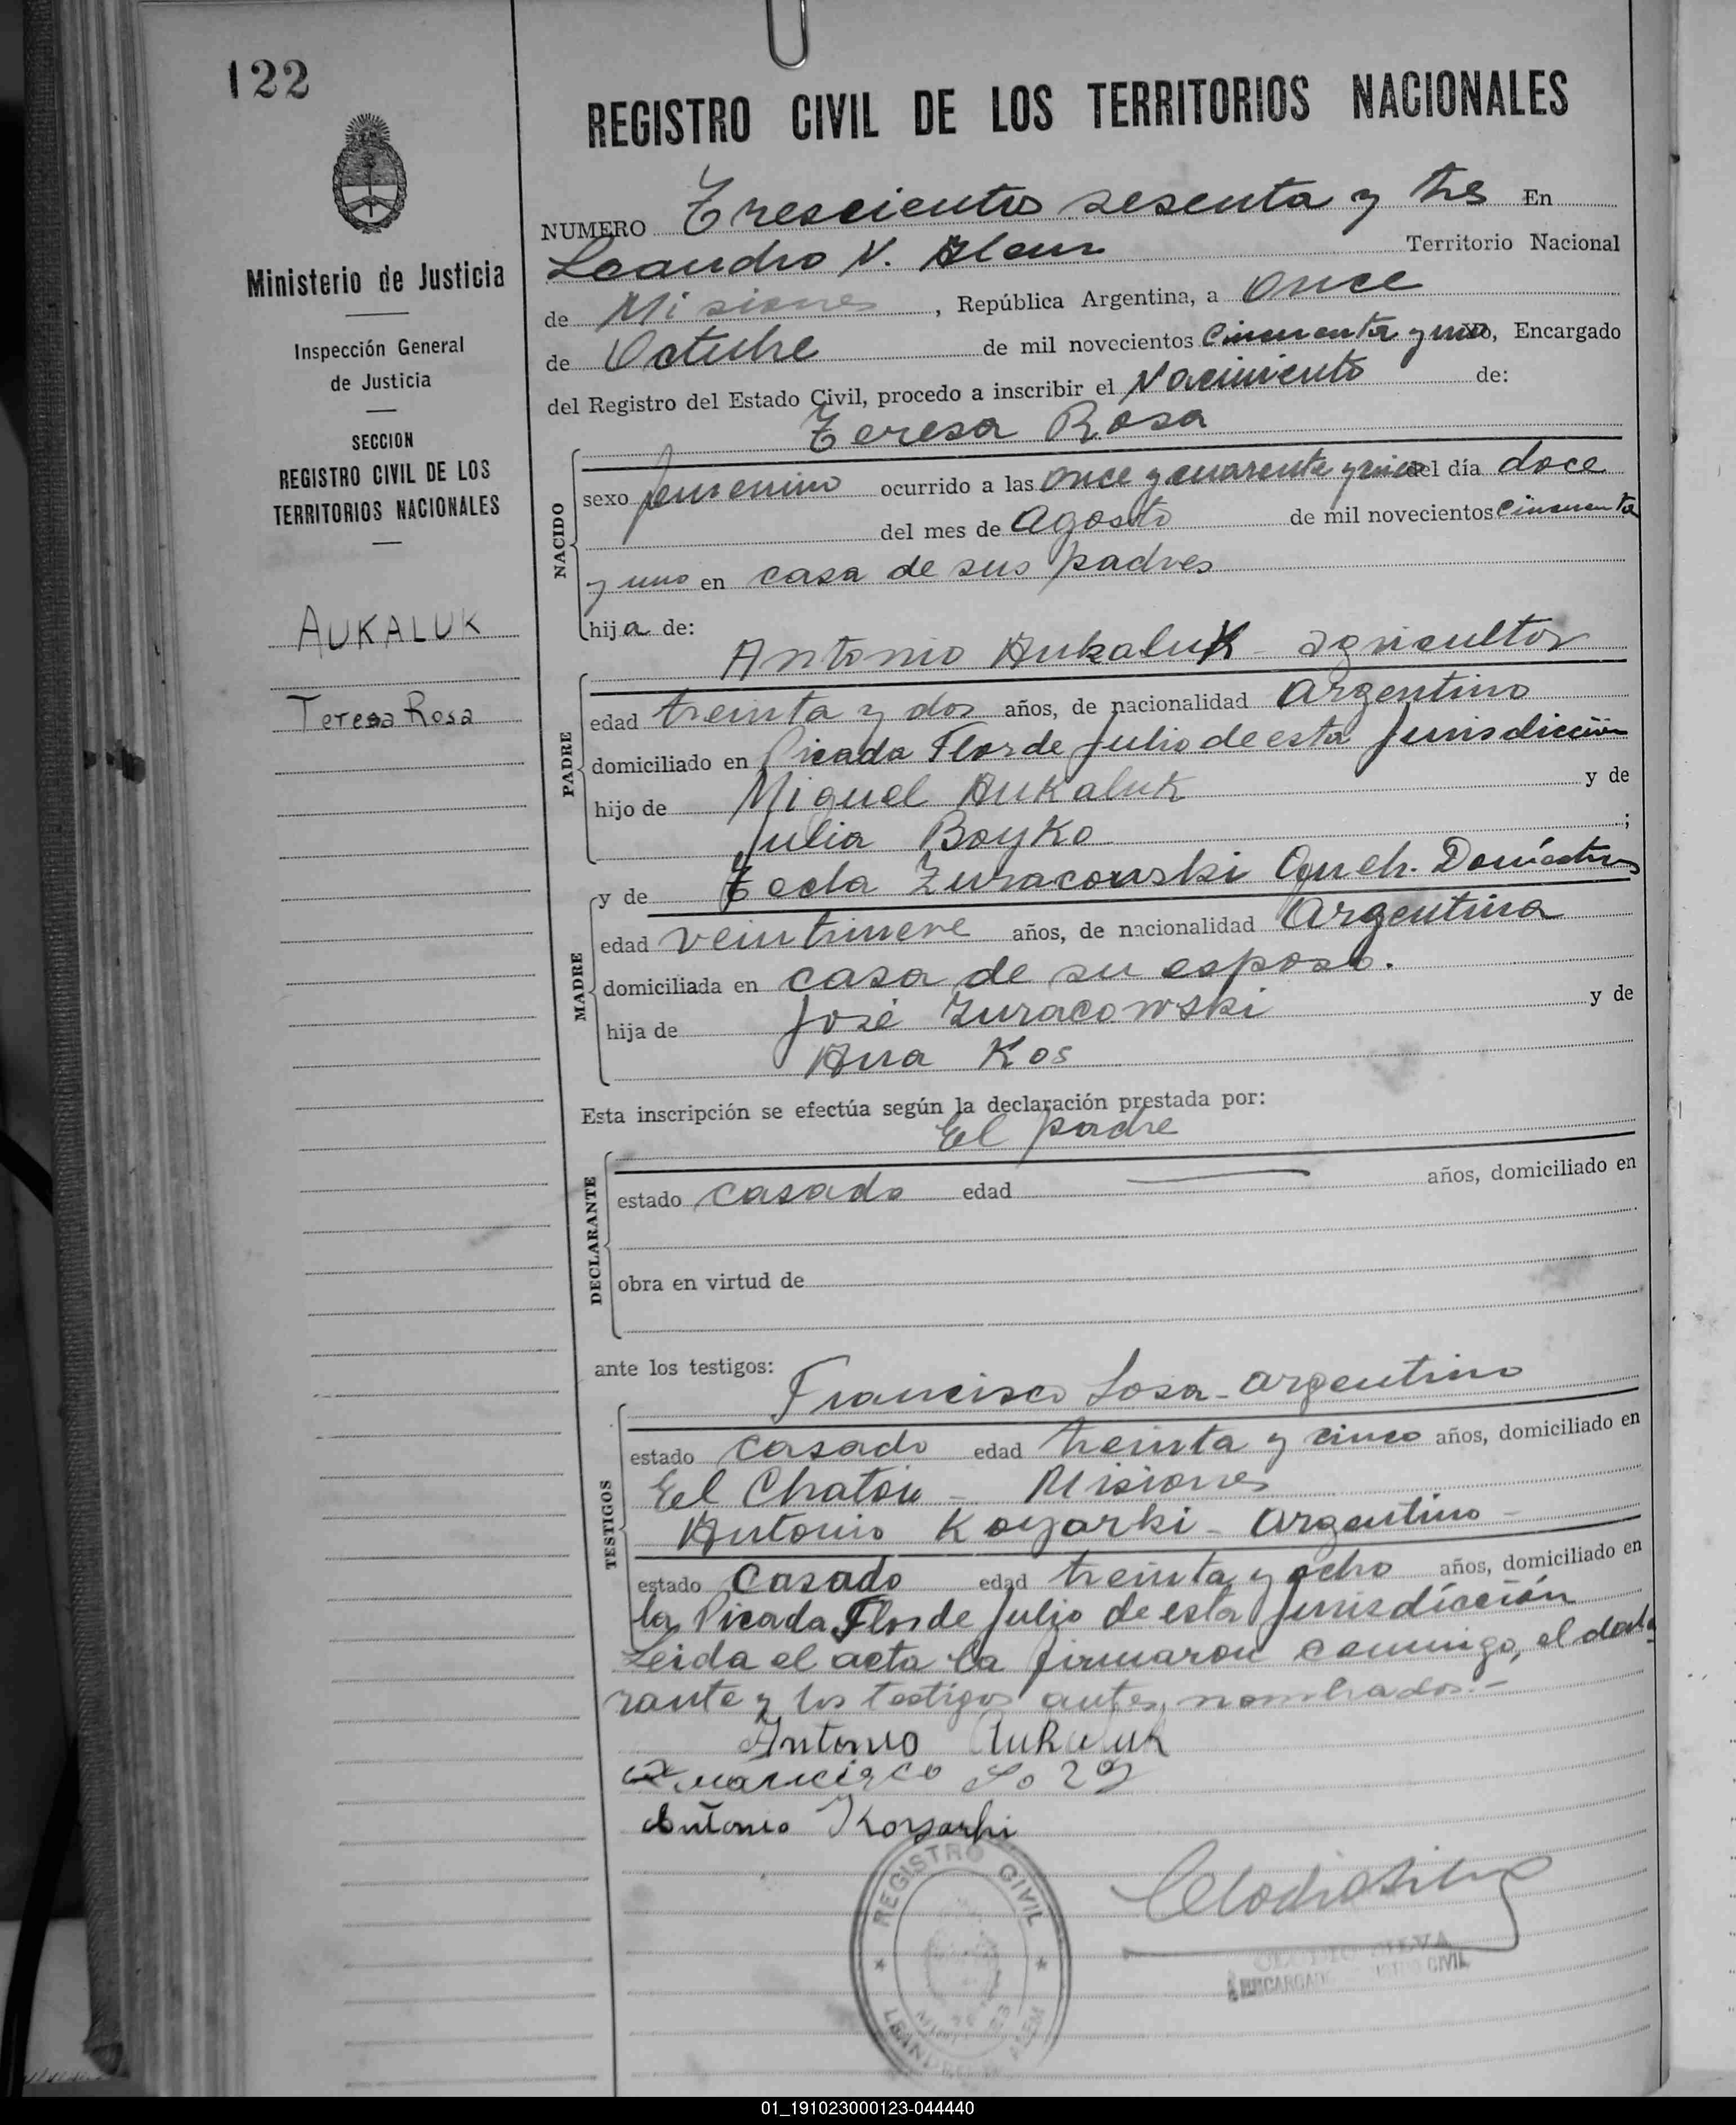 122
Ministerio de Justicia
Inspección General
de Justicia
SECCION
REGISTRO CIVIL DE LOS
TERRITORIOS NACIONALES
AUKALUK
Teresa Rosa
REGISTRO CIVIL DE LOS TERRITORIOS NACIONALES
NUMERO Trescientos sesenta y tres En
Leandro N. Alem Territorio Nacional
de Misiones, República Argentina, a once
de Octubre de mil novecientos cincuenta y uno, Encargado
del Registro del Estado Civil, procedo a inscribir el Nacimiento de:
Teresa Rosa
NACIDO
sexo femenino ocurrido a las once y cuarenta y cinco del día doce
del mes de Agosto de mil novecientos cincuenta
y uno en casa de sus padres
hija de:
Antonio Aukaluk - agricultor
PADRE
edad treinta y dos años, de nacionalidad argentino
domiciliado en Picada Flor de Julio de esta Jurisdicción
hijo de Miguel Aukaluk y de
Julia Boyko ;
MADRE
y de Tecla Zuracowski Queh. Domésticos
edad veintinueve años, de nacionalidad Argentina
domiciliada en casa de su esposo.
hija de José Zuracowski y de
Ana Kos
Esta inscripción se efectúa según la declaración prestada por:
El padre
DECLARANTE
estado casado edad — años, domiciliado en
obra en virtud de
ante los testigos:
Francisco Sosa - argentino
TESTIGOS
estado casado edad treinta y cinco años, domiciliado en
El Chatón - Misiones
Antonio Koyarki - argentino -
estado casado edad treinta y ocho años, domiciliado en
la Picada Flor de Julio de esta Jurisdicción
Leida el acta la firmaron conmigo, el decla
rante y los testigos antes nombrados.-
Antonio Aukaluk
Francisco Sosa
Antonio Koyarki
REGISTRO CIVIL
LEANDRO N. ALEM
Clodio Silva
CLODIO SILVA
ENCARGADO REGISTRO CIVIL
01_191023000123-044440